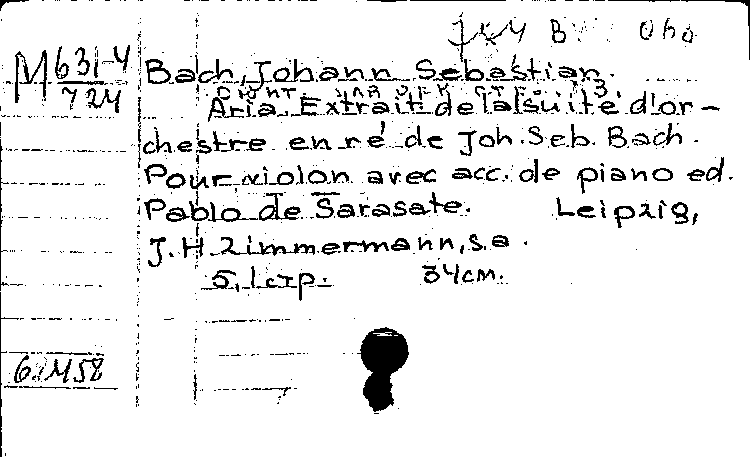 M 631-4
724
Bach, Johann Sebastian.
Aria. Extrait de la suite d'or-
chestre en ré de Joh. Seb. Bach.
Pour violon avec acc. de piano ed.
Pablo de Sarasate. Leipzig,
J. H. Zimmermann, s.a.
5, 1 стр. 34 см.